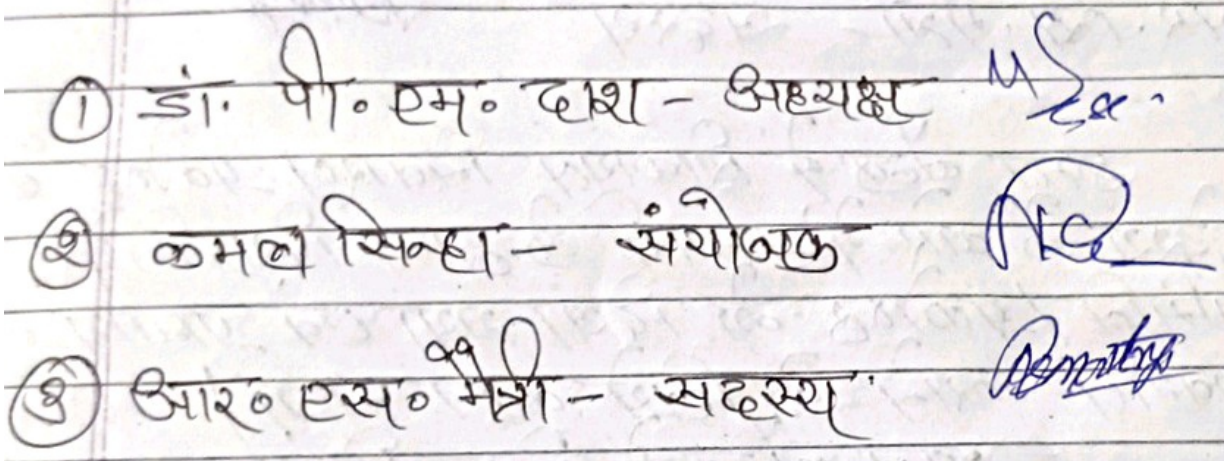 ① डां. पी॰ एम॰ दाश - अध्यक्ष
② कमल सिन्हा - संयोजक
③ आर॰ एस॰ मैत्री - सदस्य